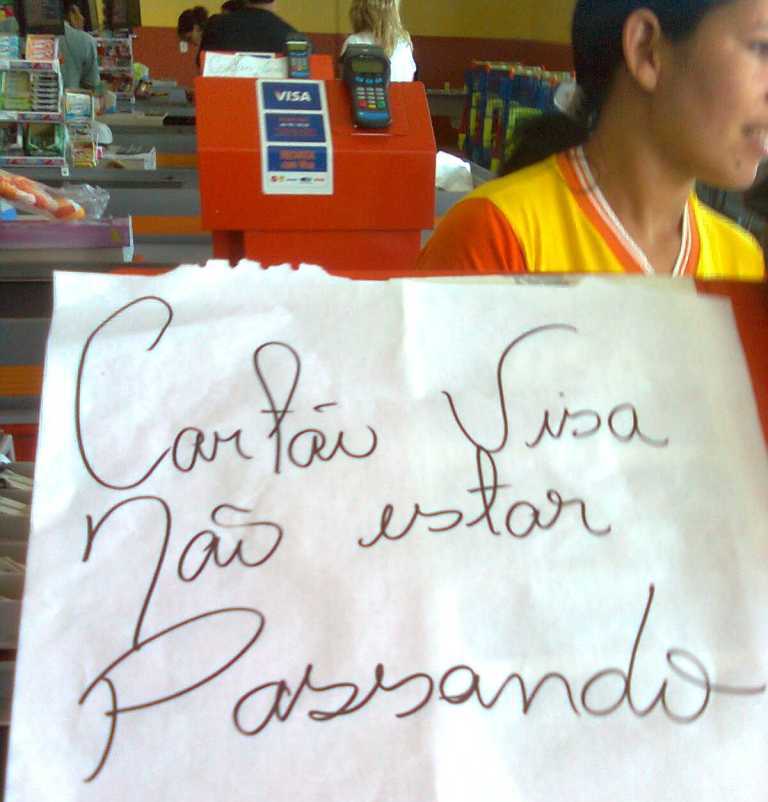 VISA
Cartão Visa
Não estar
Passando